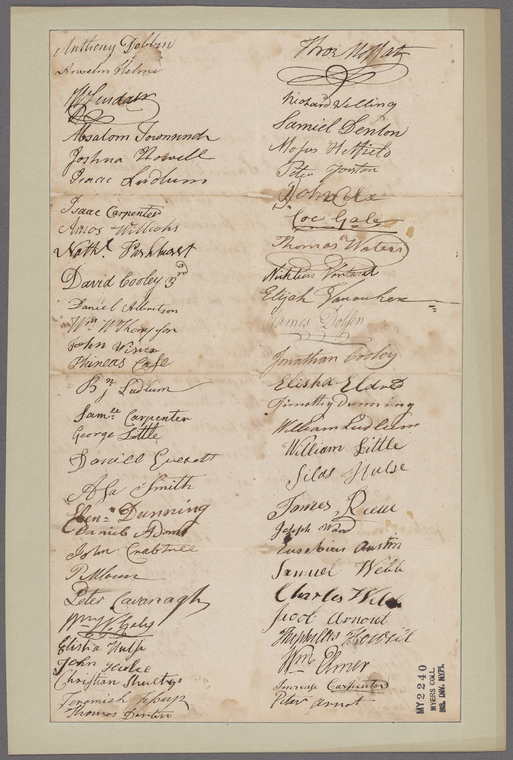 Anthony Dobbin
Anselm Helme
Absalom Townsend
Joshua Howell
Isaac Ludlum
Isaac Carpenter
Amos Williams
Nathl. Parkhurst
David Cooley 3rd
Daniel Albertson
Wm. W Thompson
John Wisner
Phineas Case
Bn. J Ludlum
Samll. Carpenter
George Little
Everett
Asa Smith
Ebenr. Dunning
Daniel Adams
John Crabtree
Peter Cavanagh
Wm W Gale
Elisha Hulse
John
Christian Shultys
Jeremiah
Thomas
Thos Moffat
Richard
Samuel Denton
Moses Hetfield
Peter
John
Coe Gale
Thomas Waters
Elijah Vanauken
James Dolsen
Jonathan Cooley
Elisha Eldred
Timothy Dunning
William Ludlum
William Little
Silas Hulse
James Reeve
Joseph
Eusebius Austin
Samuel Webb
Charles Webb
Jacob Arnout
Wm. Elmer
Increase Carpenter
Peter Arnot
MY 2240
MYERS COLL.
MS. DIV. NYPL